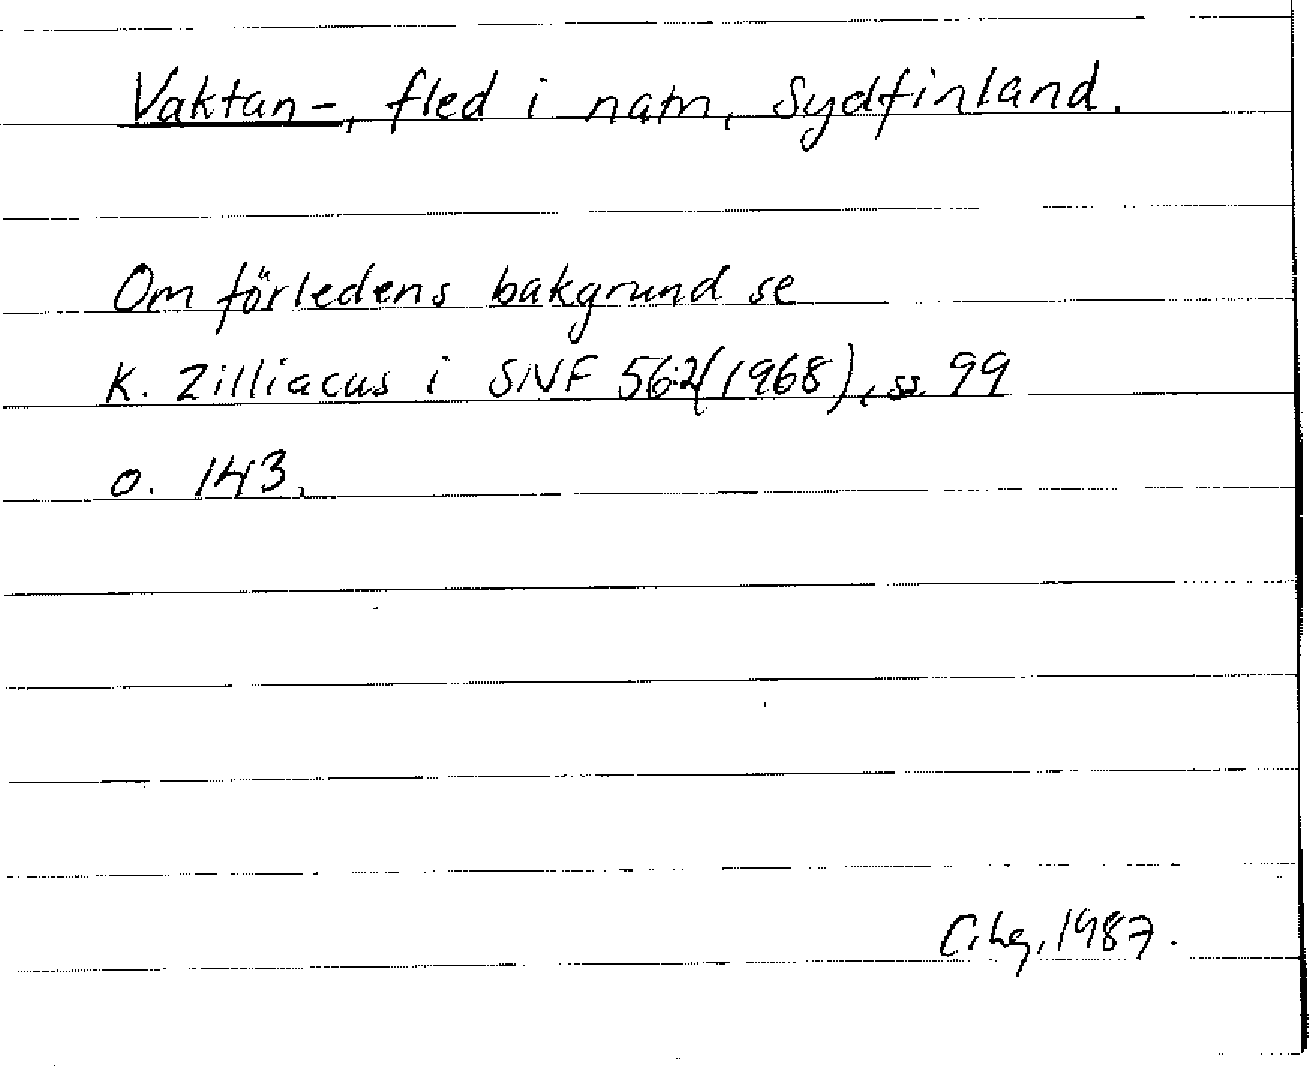 Vaktan-, fled i namn, Sydfinland.
Om förledens bakgrund se
K. Zilliacus i SNF 56:2(1968), ss. 99
o. 143.
C.hg, 1987.